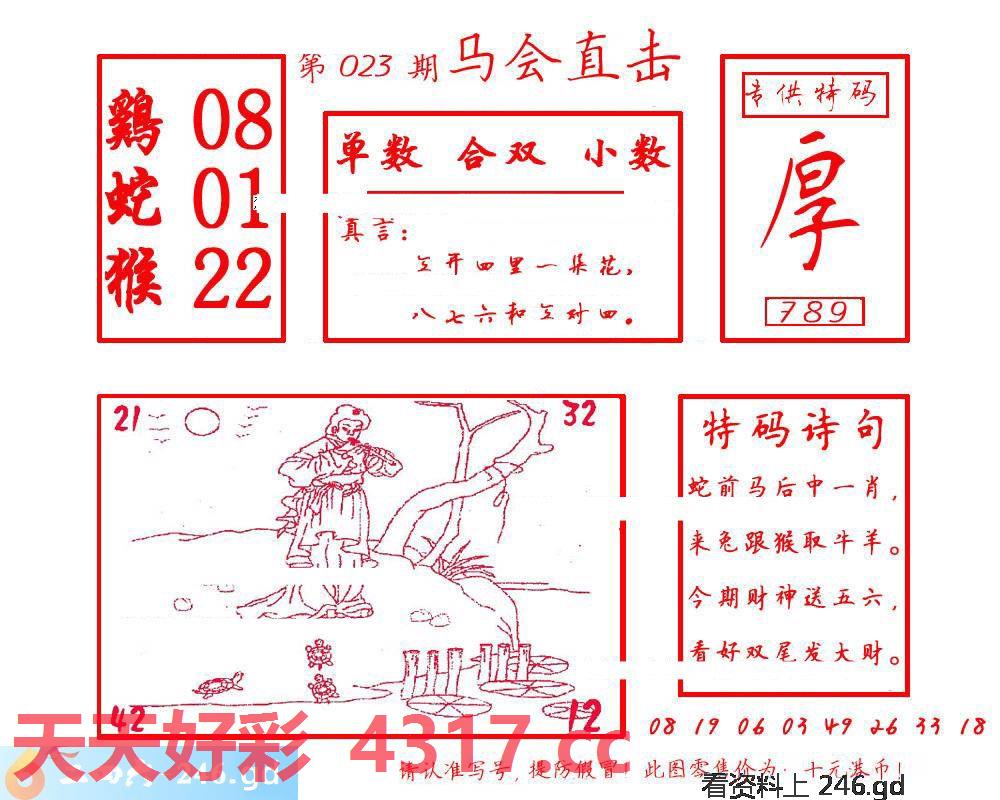 第 023 期 马会直击
鷄 08
蛇 01
猴 22
单数 合双 小数
真言：
三开四里一朵花，
八七六和三对四。
专供特码
厚
789
21
32
42
12
特码诗句
蛇前马后中一肖，
来兔跟猴取牛羊。
今期财神送五六，
看好双尾发大财。
08 19 06 03 49 26 33 18
天天好彩 4317.cc
246.gd
请认准写号，提防假冒！此图零售价为：十元港币！
看资料上 246.gd